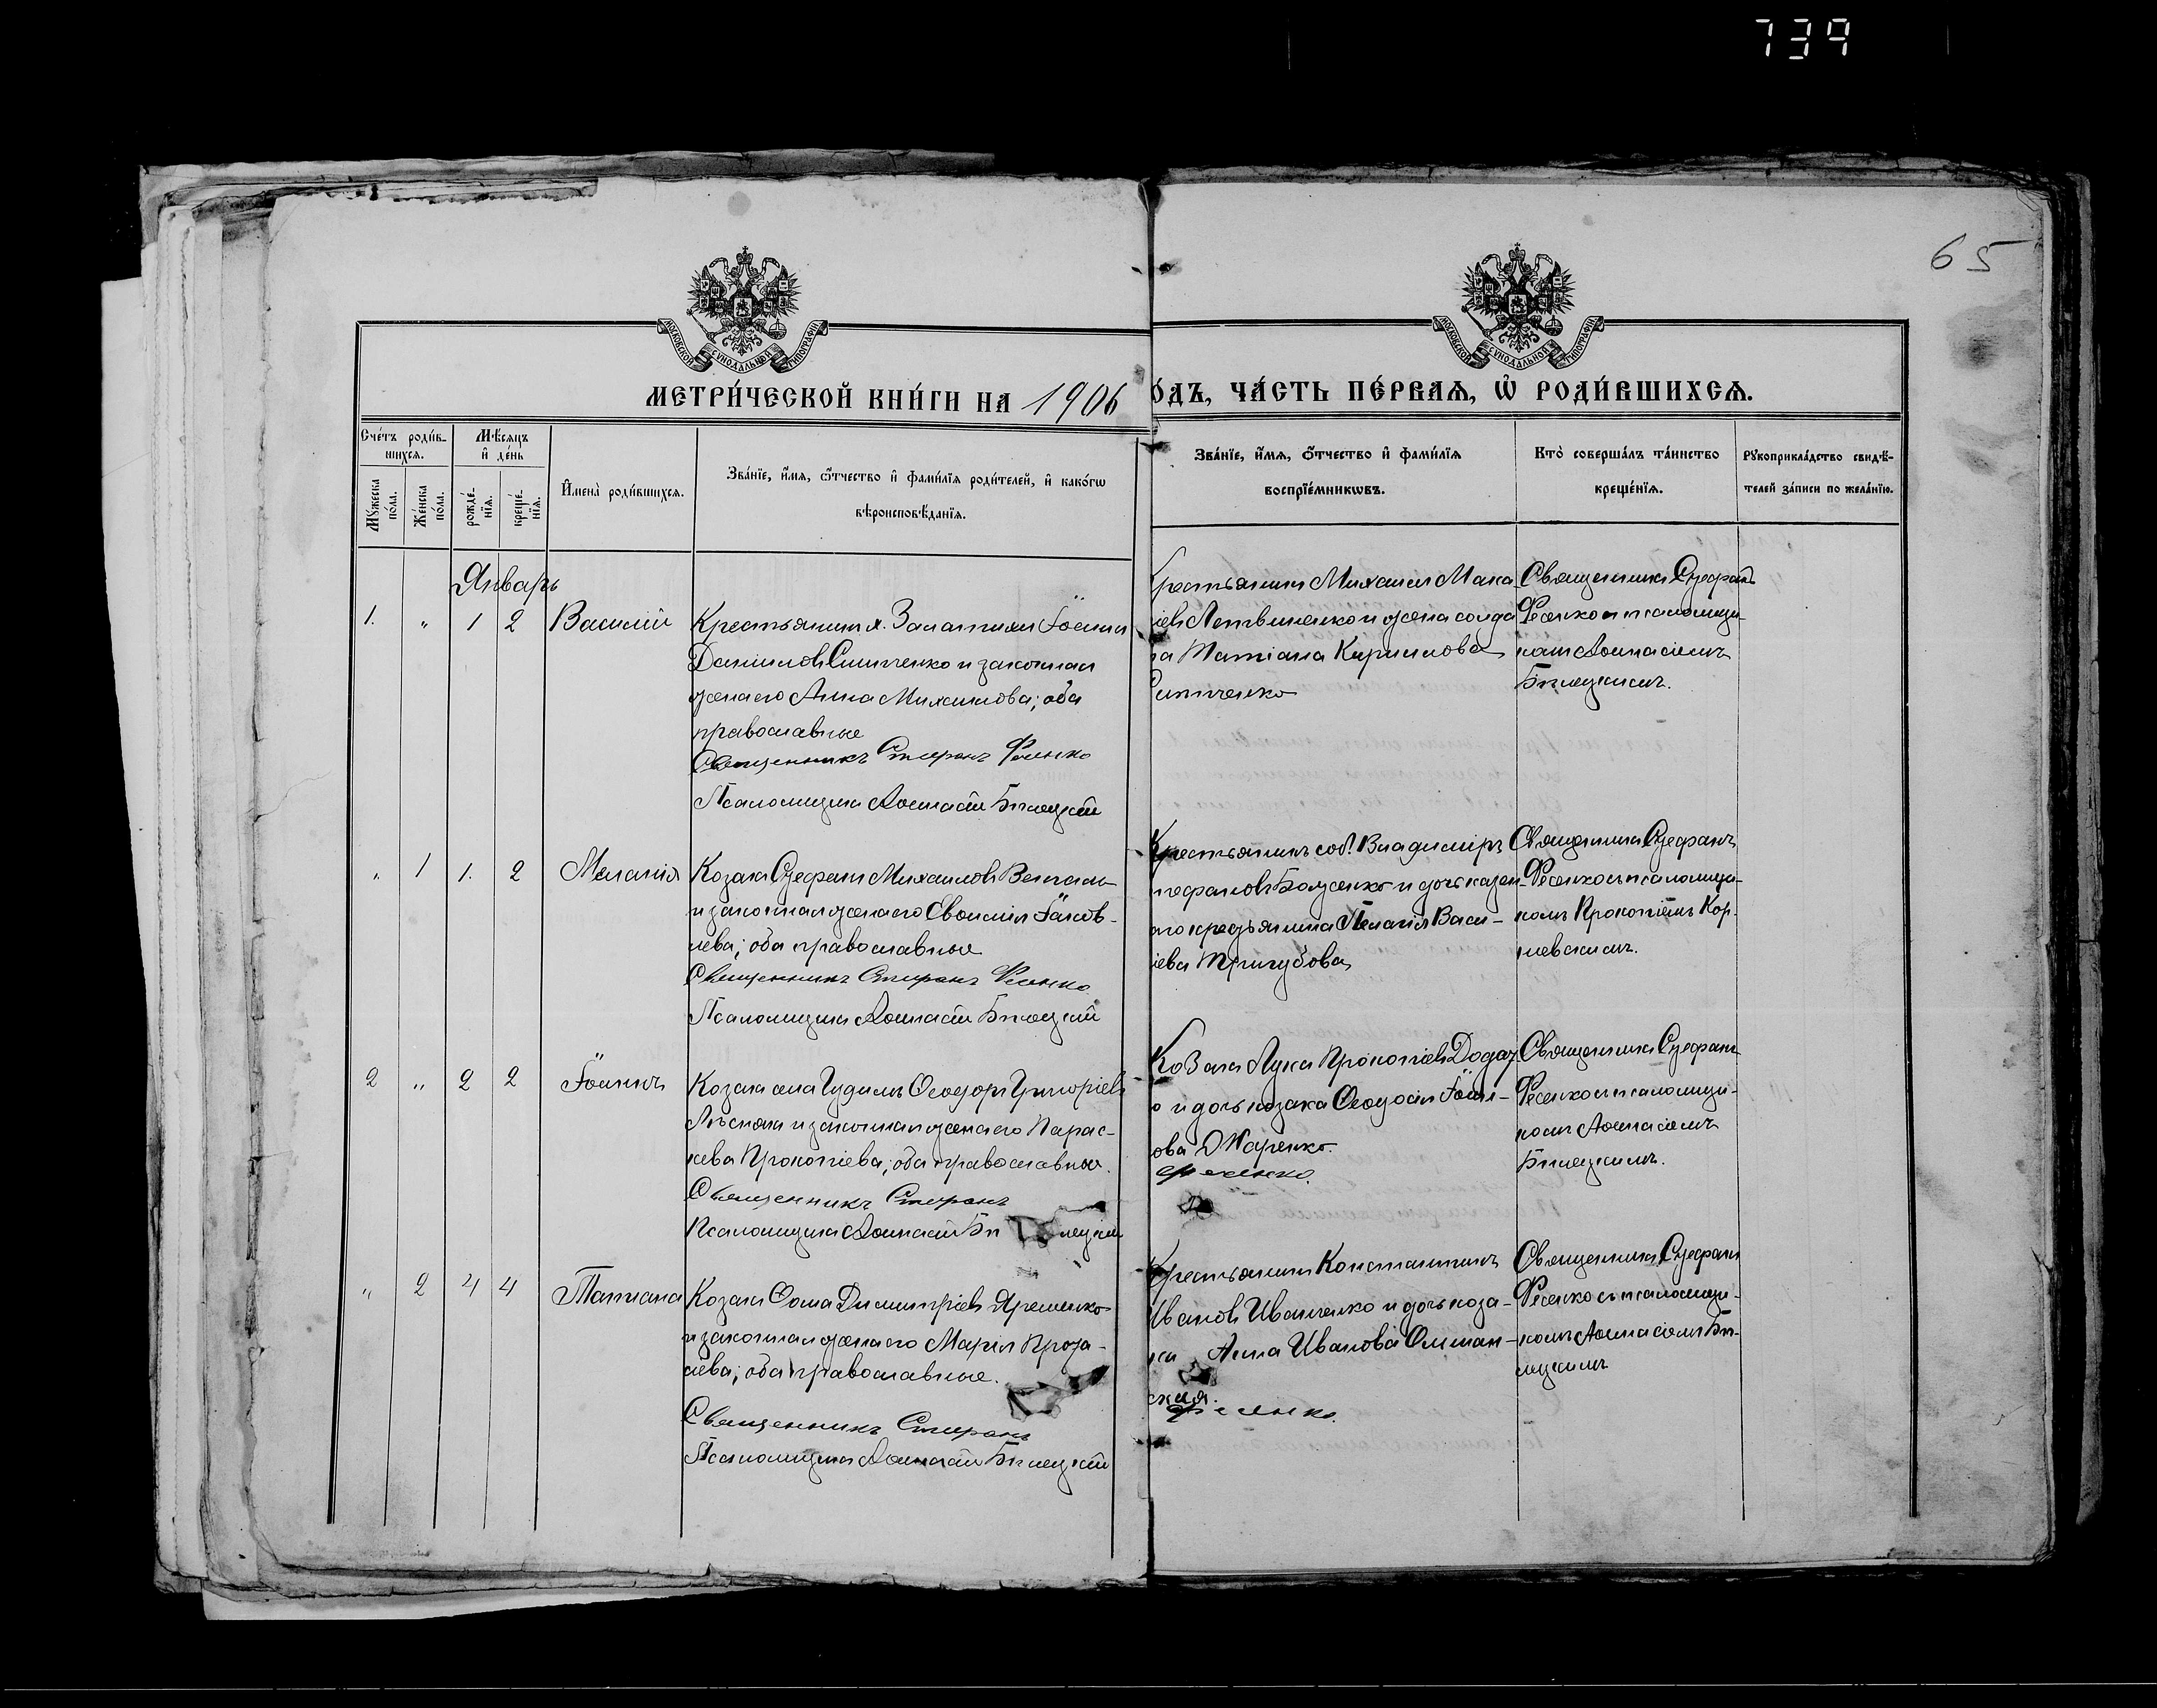 739
65
МОСКОВСКОЙ СѴНОДАЛЬНОЙ ТИПОГРАФІИ
МОСКОВСКОЙ СѴНОДАЛЬНОЙ ТИПОГРАФІИ
МЕТРИ́ЧЕСКОЙ КНИ́ГИ НА 1906
О́ДЪ, ЧА́СТЬ ПЕ́РВАѦ, Ѡ҆ РОДИ́ВШИХСѦ.
Сче́тъ роди́в-
шихсѧ.
Мꙋ́жеска по́ла.
Же́нска по́ла.
Мѣ́сѧцъ
и҆ де́нь
рожде́-нїѧ.
креще́-нїѧ.
И҆мена̀ роди́вшихсѧ.
Зва́нїе, и҆́мѧ, ѻ҆́тчество и҆ фами́лїѧ роди́телей, и҆ како́гѡ
вѣроисповѣ́данїѧ.
Зва́нїе, и҆́мѧ, ѻ҆́тчество и҆ фами́лїѧ
воспрїе́мникѡвъ.
Кто̀ соверша́лъ та́инство
креще́нїѧ.
Рꙋкоприкла́дство свидѣ́-
телей за́писи по жела́нїю.
Январь
1. " 1 2 Василій
Крестьянинъ х. Іоаннъ
Даніиловъ Ситченко и законная
жена его Анна Михаилова; оба
православные
Священникъ Стефанъ Фесенко
Псаломщикъ Аѳанасій Билецкій
Крестьянинъ Михаилъ Мака-
іевъ Литвиненко и жена солда
та Татіана Кириллова
Ситченко
Священникъ Стефанъ
Фесенко съ псаломщи-
комъ Аѳанасіемъ
Билецкимъ.
" 1 1. 2 Меланія
Козакъ Стефанъ Михаиловъ
и законная жена его Евѳимія Іаков-
лева; оба православные
Священникъ Стефанъ Фесенко
Псаломщикъ Аѳанасій Билецкій
Крестьянинъ соб. Владиміръ
тефановъ Боженко и дочь казен-
аго крестьянина Пелагія Васи-
іева Тригубова
Священникъ Стефанъ
Фесенко съ псаломщи-
комъ Прокопіемъ Кор-
невскимъ.
2 " 2 2 Іоаннъ
Козакъ села Гудимъ Ѳеодоръ Григоріевъ
Лѣснякъ и законная жена его Парас-
кева Прокопіева; оба православные.
Священникъ Стефанъ
Псаломщикъ Аѳанасій Би лецкій
Козакъ Лука Прокопіевъ
о и дочь козака Ѳеодосія Іоан-
ова
Фесенко.
Священникъ Стефанъ
Фесенко съ псаломщи-
комъ Аѳанасіемъ
Билецкимъ.
" 2 4 4 Татіана
Козакъ Ѳома Димитріевъ Яременко
и законная жена его Марія Прота-
сіева; оба православные.
Священникъ Стефанъ
Псаломщикъ Аѳанасій Билецкій
Крестьянинъ Константинъ
Ивановъ Иванченко и дочь коза-
ка Анна Иванова Ольшан-
ская.
Фесенко.
Священникъ Стефанъ
Фесенко съ псаломщи-
комъ Аѳанасіемъ Би-
лецкимъ